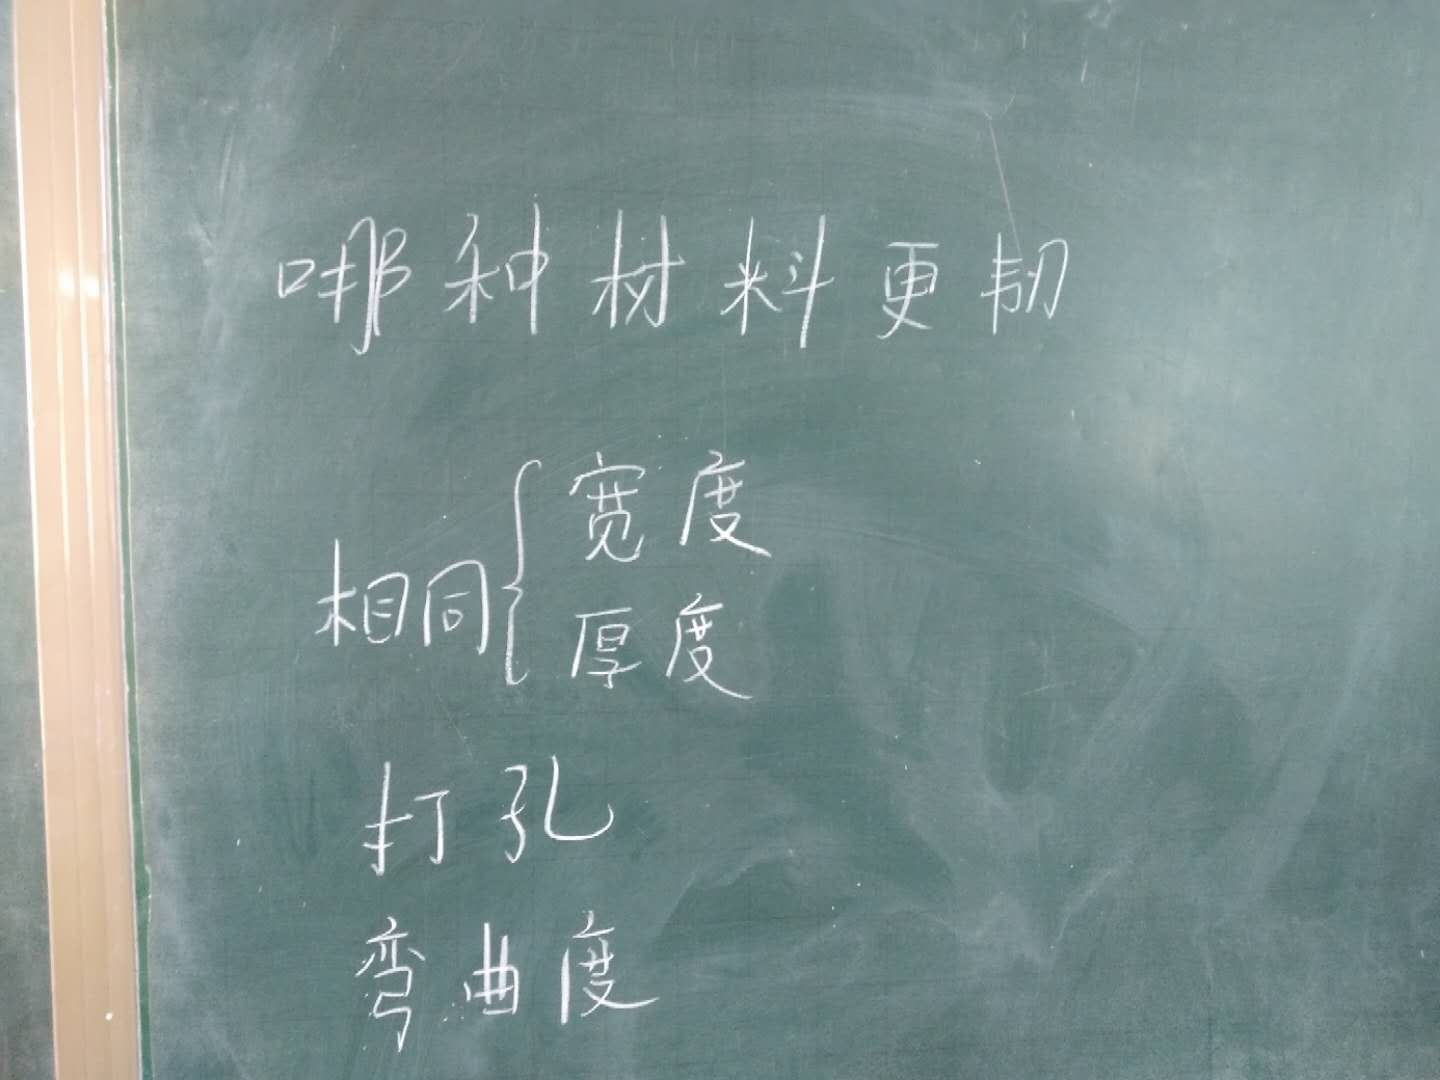 哪种材料更韧
宽度
相同{
厚度
打孔
弯曲度